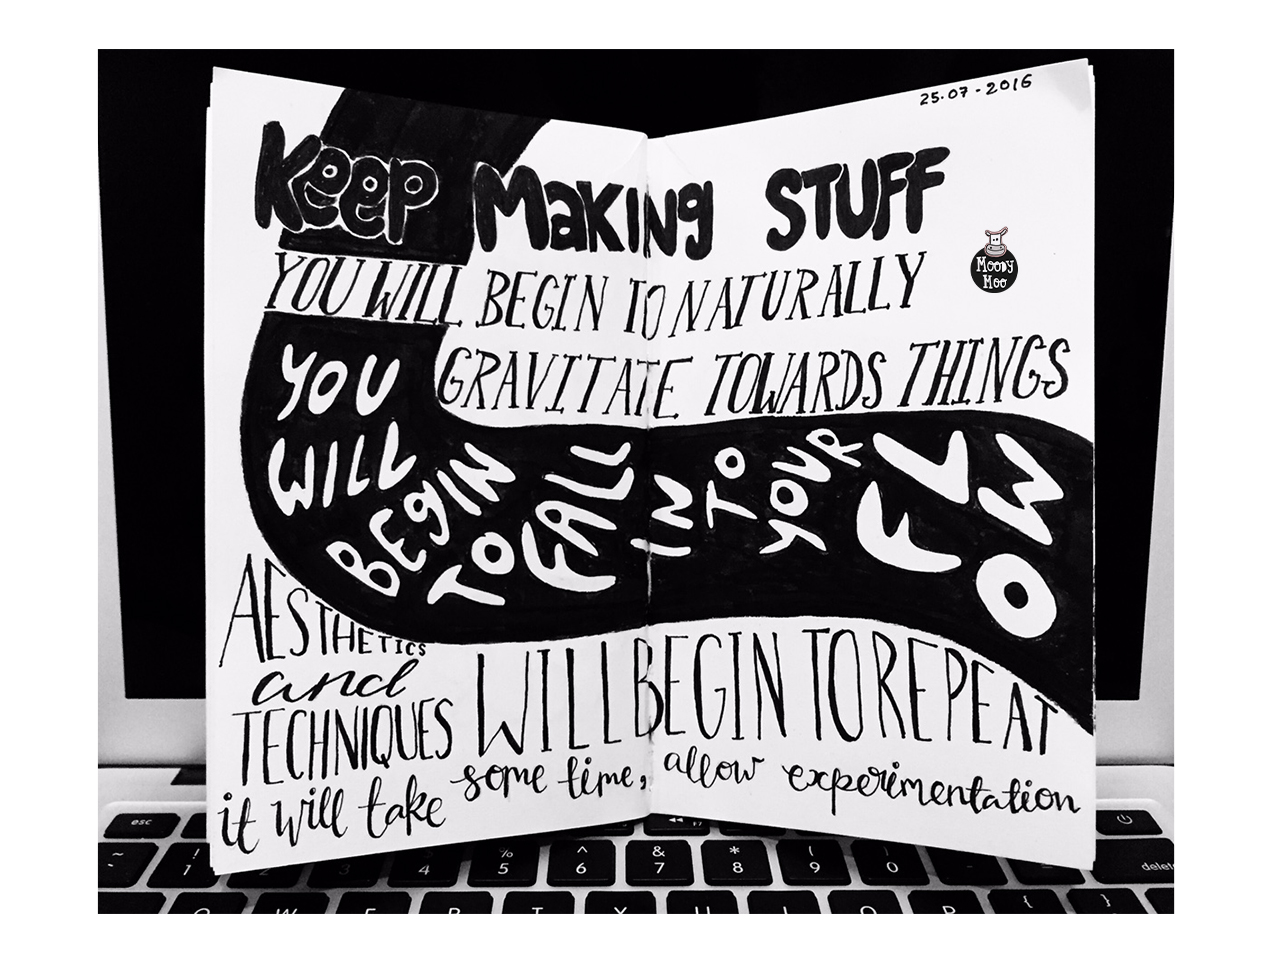 25.07-2016
Keep Making STUFF
Moody
Moo
YOU WILL BEGIN TO NATURALLY
GRAVITATE TOWARDS THINGS
YOU
WILL
BEGIN
TO FALL
IN TO YOUR FLOW
AESTHETICS
and
TECHNIQUES
WILL BEGIN TO REPEAT
it will take some time, allow experimentation
esc
~ ! % ^ & * ( ) _
1 2 3 4 5 6 7 8 9 0 delete
Q W E R T Y U I O P { }